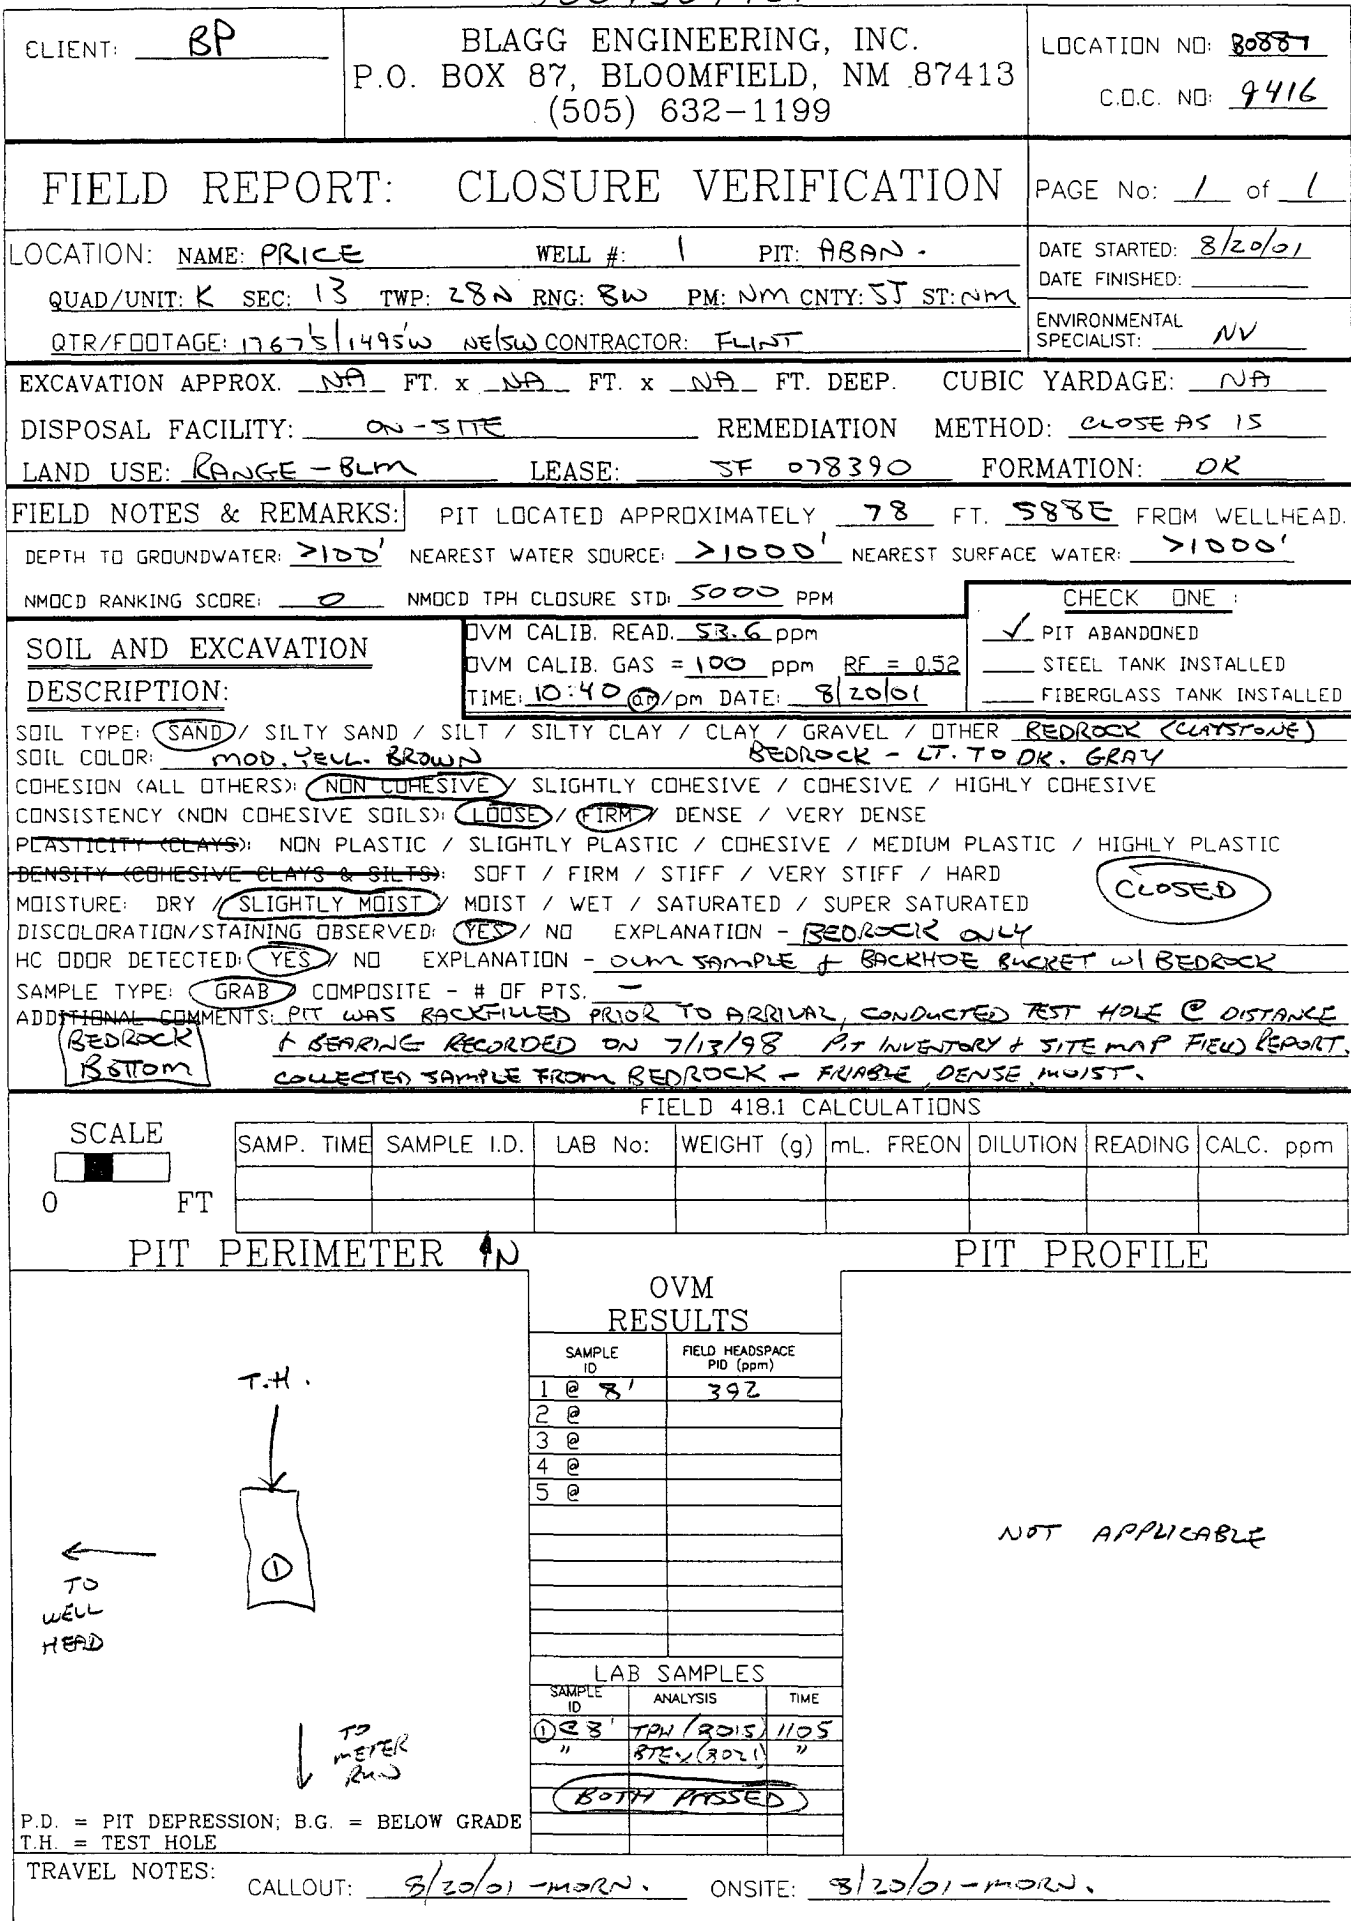 CLIENT: BP
BLAGG ENGINEERING, INC.
P.O. BOX 87, BLOOMFIELD, NM 87413
(505) 632-1199
LOCATION NO: B0887
C.O.C. NO: 9416
FIELD REPORT: CLOSURE VERIFICATION
PAGE No: 1 of 1
LOCATION: NAME: PRICE WELL #: 1 PIT: ABAN.
QUAD/UNIT: K SEC: 13 TWP: 28N RNG: 8W PM: NM CNTY: SJ ST: NM
QTR/FOOTAGE: 1767'S/1495'W NE/SW CONTRACTOR: FLINT
DATE STARTED: 8/20/01
DATE FINISHED:
ENVIRONMENTAL
SPECIALIST: NV
EXCAVATION APPROX. NA FT. x NA FT. x NA FT. DEEP. CUBIC YARDAGE: NA
DISPOSAL FACILITY: ON-SITE REMEDIATION METHOD: CLOSE AS IS
LAND USE: RANGE - BLM LEASE: SF 078390 FORMATION: DK
FIELD NOTES & REMARKS: PIT LOCATED APPROXIMATELY 78 FT. S88E FROM WELLHEAD.
DEPTH TO GROUNDWATER: >100' NEAREST WATER SOURCE: >1000' NEAREST SURFACE WATER: >1000'
NMOCD RANKING SCORE: 0 NMOCD TPH CLOSURE STD: 5000 PPM
CHECK ONE :
✓ PIT ABANDONED
STEEL TANK INSTALLED
FIBERGLASS TANK INSTALLED
SOIL AND EXCAVATION
DESCRIPTION:
OVM CALIB. READ. 53.6 ppm
OVM CALIB. GAS = 100 ppm RF = 0.52
TIME: 10:40 am/pm DATE: 8/20/01
SOIL TYPE: SAND / SILTY SAND / SILT / SILTY CLAY / CLAY / GRAVEL / OTHER BEDROCK (CLAYSTONE)
SOIL COLOR: MOD. YELL. BROWN BEDROCK - LT. TO DK. GRAY
COHESION (ALL OTHERS): NON COHESIVE / SLIGHTLY COHESIVE / COHESIVE / HIGHLY COHESIVE
CONSISTENCY (NON COHESIVE SOILS): LOOSE / FIRM / DENSE / VERY DENSE
PLASTICITY (CLAYS): NON PLASTIC / SLIGHTLY PLASTIC / COHESIVE / MEDIUM PLASTIC / HIGHLY PLASTIC
DENSITY (COHESIVE CLAYS & SILTS): SOFT / FIRM / STIFF / VERY STIFF / HARD
CLOSED
MOISTURE: DRY / SLIGHTLY MOIST / MOIST / WET / SATURATED / SUPER SATURATED
DISCOLORATION/STAINING OBSERVED: YES / NO EXPLANATION - BEDROCK ONLY
HC ODOR DETECTED: YES / NO EXPLANATION - OVM SAMPLE + BACKHOE BUCKET W/ BEDROCK
SAMPLE TYPE: GRAB / COMPOSITE - # OF PTS. -
ADDITIONAL COMMENTS: PIT WAS BACKFILLED PRIOR TO ARRIVAL, CONDUCTED TEST HOLE @ DISTANCE
BEDROCK
BOTTOM
+ BEARING RECORDED ON 7/13/98 PIT INVENTORY & SITE MAP FIELD REPORT.
COLLECTED SAMPLE FROM BEDROCK - FRIABLE, DENSE, MOIST.
FIELD 418.1 CALCULATIONS
SCALE
0 FT
SAMP. TIME SAMPLE I.D. LAB No: WEIGHT (g) mL. FREON DILUTION READING CALC. ppm
PIT PERIMETER N
PIT PROFILE
OVM
RESULTS
SAMPLE ID FIELD HEADSPACE PID (ppm)
1 @ 8' 392
2 @
3 @
4 @
5 @
T.H.
1
TO
WELL
HEAD
NOT APPLICABLE
LAB SAMPLES
SAMPLE ID ANALYSIS TIME
① @ 8' TPH (8015) 1105
" BTEX (8021) "
BOTH PASSED
TO
METER
RUN
P.D. = PIT DEPRESSION; B.G. = BELOW GRADE
T.H. = TEST HOLE
TRAVEL NOTES: CALLOUT: 8/20/01 - MORN. ONSITE: 8/20/01 - MORN.